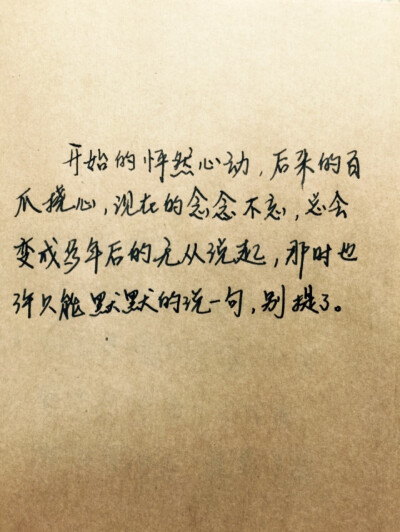 开始的怦然心动，后来的百
爪挠心，现在的念念不忘，总会
变成多年后的无从说起，那时也
许只能默默的说一句，别提了。